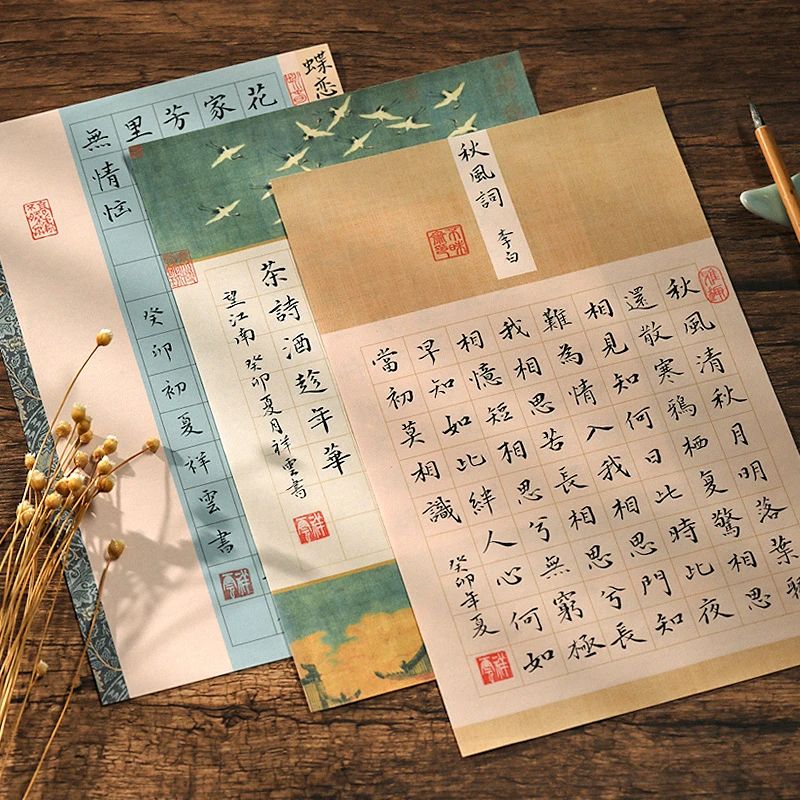 秋風詞
李白
秋風清秋月明落葉
還散寒鴉栖复驚相思
相見知何日此時此夜
難為情入我相思門知
我相思苦長相思兮長
相憶短相思兮無窮極
早知如此絆人心何如
當初莫相識
癸卯年夏
茶詩酒趁年華
望江南 癸卯夏月祥雲書
蝶恋
花
家
芳
里
無情恼
癸卯初夏祥雲書